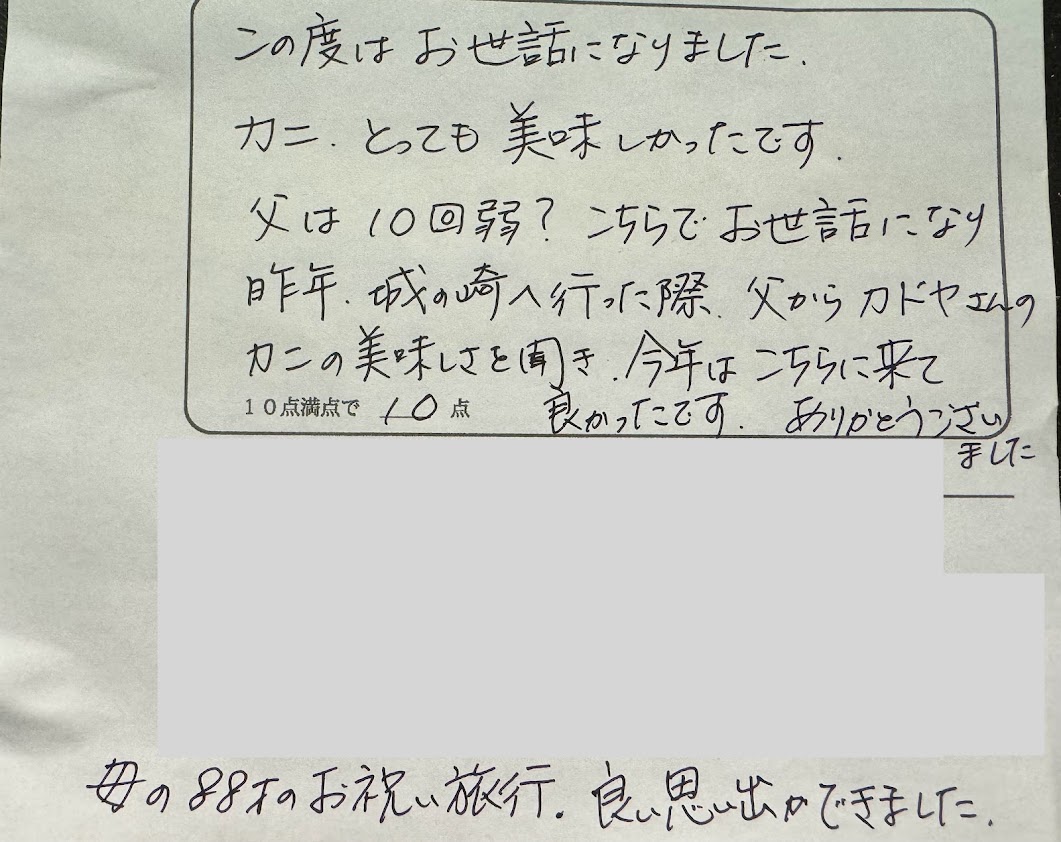 この度はお世話になりました.
カニ. とっても美味しかったです.
父は10回弱? こちらでお世話になり
昨年. 城の崎へ行った際. 父からカドヤさんの
カニの美味しさを聞き. 今年はこちらに来て
10点満点で 10 点 良かったです. ありがとうござい
ました
母の88才のお祝い旅行. 良い思い出ができました.